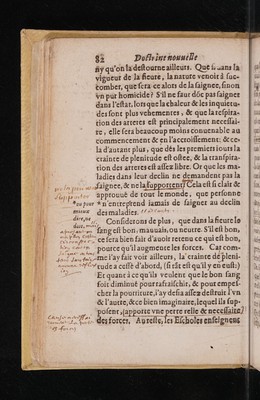 82 Doctrine nouuelle
ny qu'on la destourne ailleurs. Que si dans la
vigueur de la fieure, la nature venoit à suc-
comber, que sera ce alors de la saignee, sinon
vn pur homicide? S'il ne faut dõc pas saigner
dans l'estat, lors que la chaleur & les inquietu-
des sont plus vehementes, & que la respira-
tion des arteres est principalement necessai-
re, elle sera beaucoup moins conuenable au
commencement & en l'accroissement: & ce-
la d'autant plus, que dés les premiers iours la
crainte de plenitude est ostee, & la transpira-
tion des arteres est assez libre. Or que les ma-
ladies dans leur declin ne demandent pas la
saignee, & ne la supportent: Cela est si clair &
approuué de tout le monde, que personne
n'entreprend iamais de saigner au declin
des maladies.
Considerons de plus, que dans la fieure le
sang est bon, mauuais, ou neutre. S'il est bon,
ce sera bien fait d'auoir retenu ce qui est bon,
pource qu'il augmente les forces. Car com-
me i'ay fait voir ailleurs, la crainte de pleni-
tude a cessé d'abord, (si tãt est qu'il y en eust:)
Et quant à ce qu'ils veulent que le bon sang
soit diminué pour rafraischir, & pour empes-
cher la pourriture, i'ay desia assez destruit l'vn
& l'autre, & ce bien imaginaire, lequel ils sup-
posent, apporte vne perte reelle & necessaire
des forces. Au reste, les Escholes enseignent